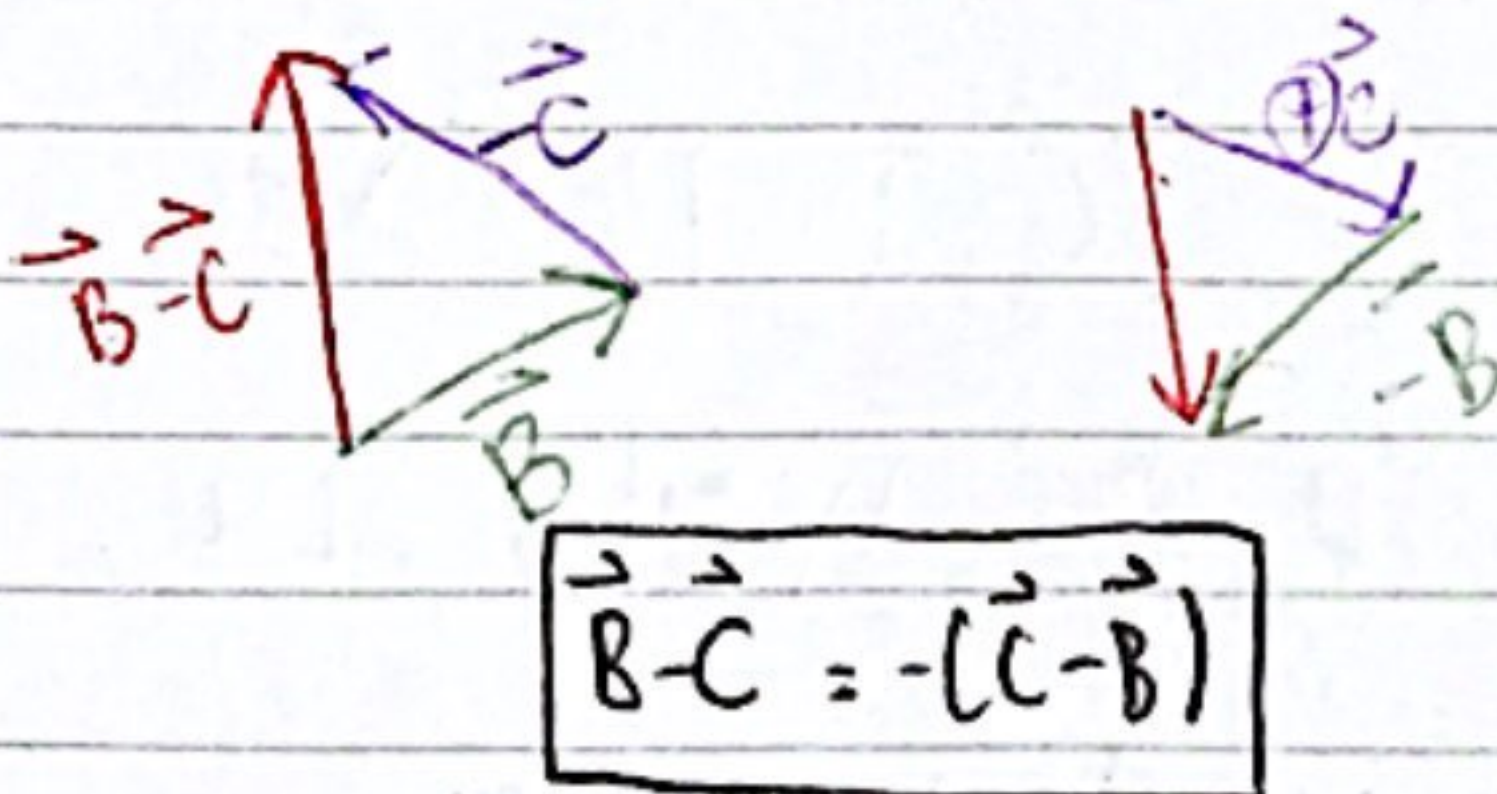 -C⃗
⊕C⃗
B⃗-C⃗
-B
B⃗
B⃗-C⃗ = -(C⃗-B⃗)